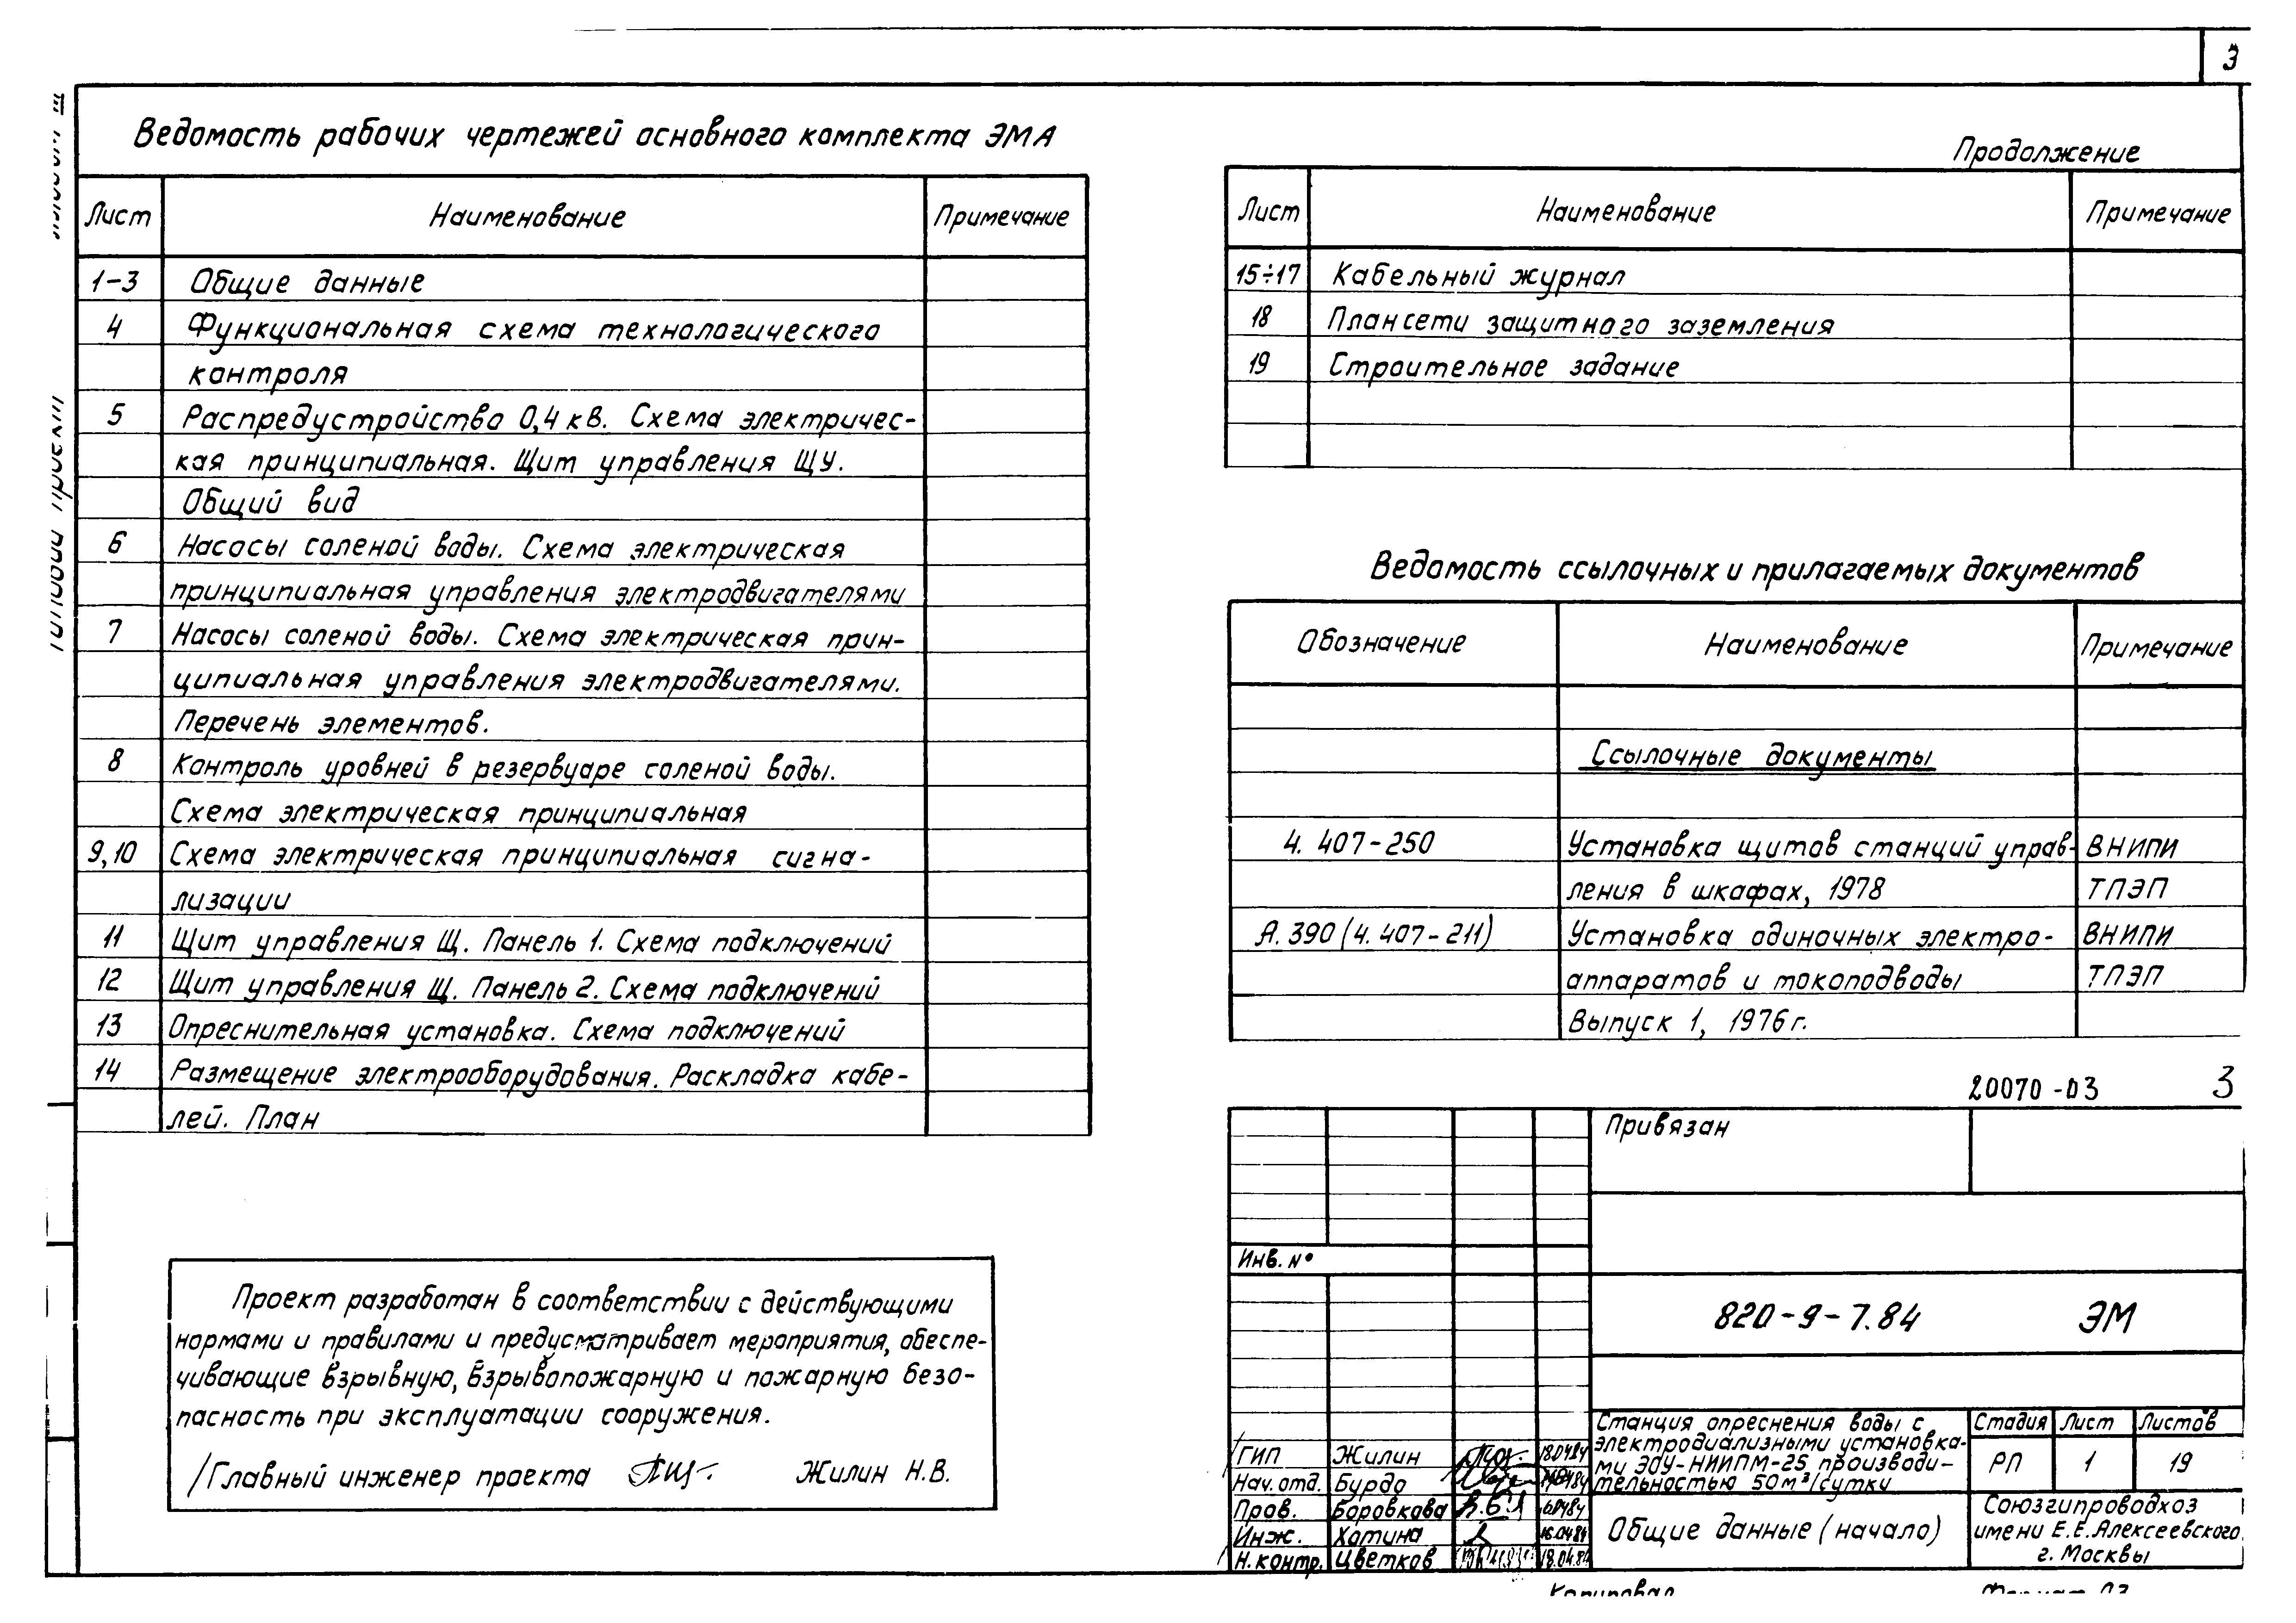 3
Ведомость рабочих чертежей основного комплекта ЭМА
Лист Наименование Примечание
1-3 Общие данные
4 Функциональная схема технологического
контроля
5 Распредустройство 0,4 кВ. Схема электричес-
кая принципиальная. Щит управления ЩУ.
Общий вид
6 Насосы соленой воды. Схема электрическая
принципиальная управления электродвигателями
7 Насосы соленой воды. Схема электрическая прин-
ципиальная управления электродвигателями.
Перечень элементов.
8 Контроль уровней в резервуаре соленой воды.
Схема электрическая принципиальная
9,10 Схема электрическая принципиальная сигна-
лизации
11 Щит управления Щ. Панель 1. Схема подключений
12 Щит управления Щ. Панель 2. Схема подключений
13 Опреснительная установка. Схема подключений
14 Размещение электрооборудования. Раскладка кабе-
лей. План
Проект разработан в соответствии с действующими
нормами и правилами и предусматривает мероприятия, обеспе-
чивающие взрывную, взрывопожарную и пожарную безо-
пасность при эксплуатации сооружения.
Главный инженер проекта Жилин Н.В.
Продолжение
Лист Наименование Примечание
15÷17 Кабельный журнал
18 План сети защитного заземления
19 Строительное задание
Ведомость ссылочных и прилагаемых документов
Обозначение Наименование Примечание
Ссылочные документы
4.407-250 Установка щитов станций управ- ВНИПИ
ления в шкафах, 1978 ТПЭП
А.390 (4.407-211) Установка одиночных электро- ВНИПИ
аппаратов и токоподводы ТПЭП
Выпуск 1, 1976 г.
20070-03 3
Привязан
Инв. №
820-9-7.84 ЭМ
Станция опреснения воды с
электродиализными установка-
ми ЭДУ-НИИПМ-25 производи-
тельностью 50 м³/сутки
Стадия Лист Листов
РП 1 19
ГИП Жилин 18.04.84
Нач. отд. Бурдо
Пров. Боровкова
Инж. Хотина 16.04.84
Н. контр. Цветков 18.04.84
Общие данные (начало)
Союзгипроводхоз
имени Е.Е.Алексеевского
г. Москвы
Копировал
Типовой проект